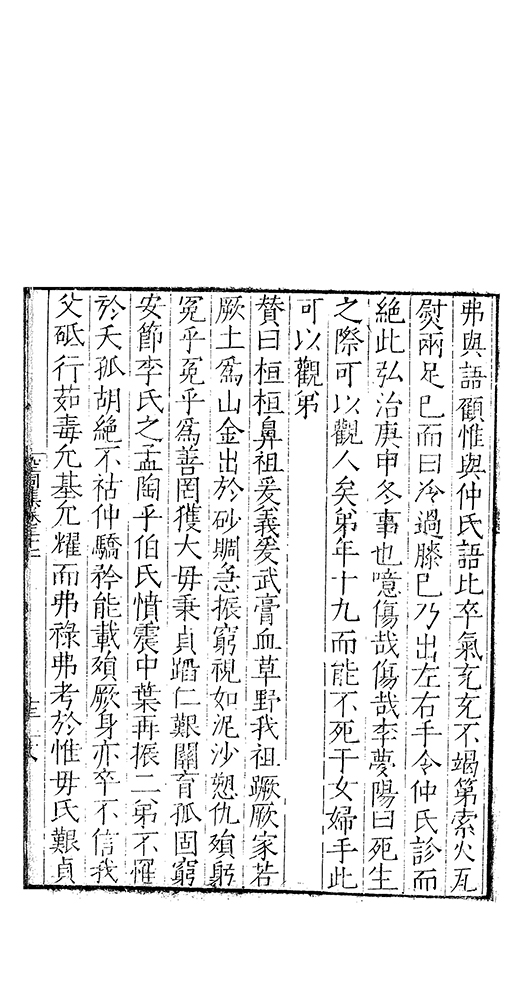 弗與語顧惟與仲氏語比卒氣充充不竭第索火瓦
熨兩足已而曰冷過膝已乃出左右手令仲氏診而
絕此弘治庚申冬事也噫傷哉傷哉李夢陽曰死生
之際可以觀人矣弟年十九而能不死于女婦手此
可以觀弟
贊曰桓桓鼻祖爰義爰武膏血草野我祖蹶厥家若
厥土為山金出於砂賙急振窮視如泥沙愬仇殞躬
冤乎冤乎為善罔獲大母秉貞蹈仁艱關育孤固窮
安節李氏之孟陶乎伯氏憤震中葉再振二弟不罹
於夭孤胡絕不祜仲驕矜能載殞厥身亦卒不信我
父砥行茹毒允基允耀而弗祿弗考於惟母氏艱貞
空同集卷三十七
十三